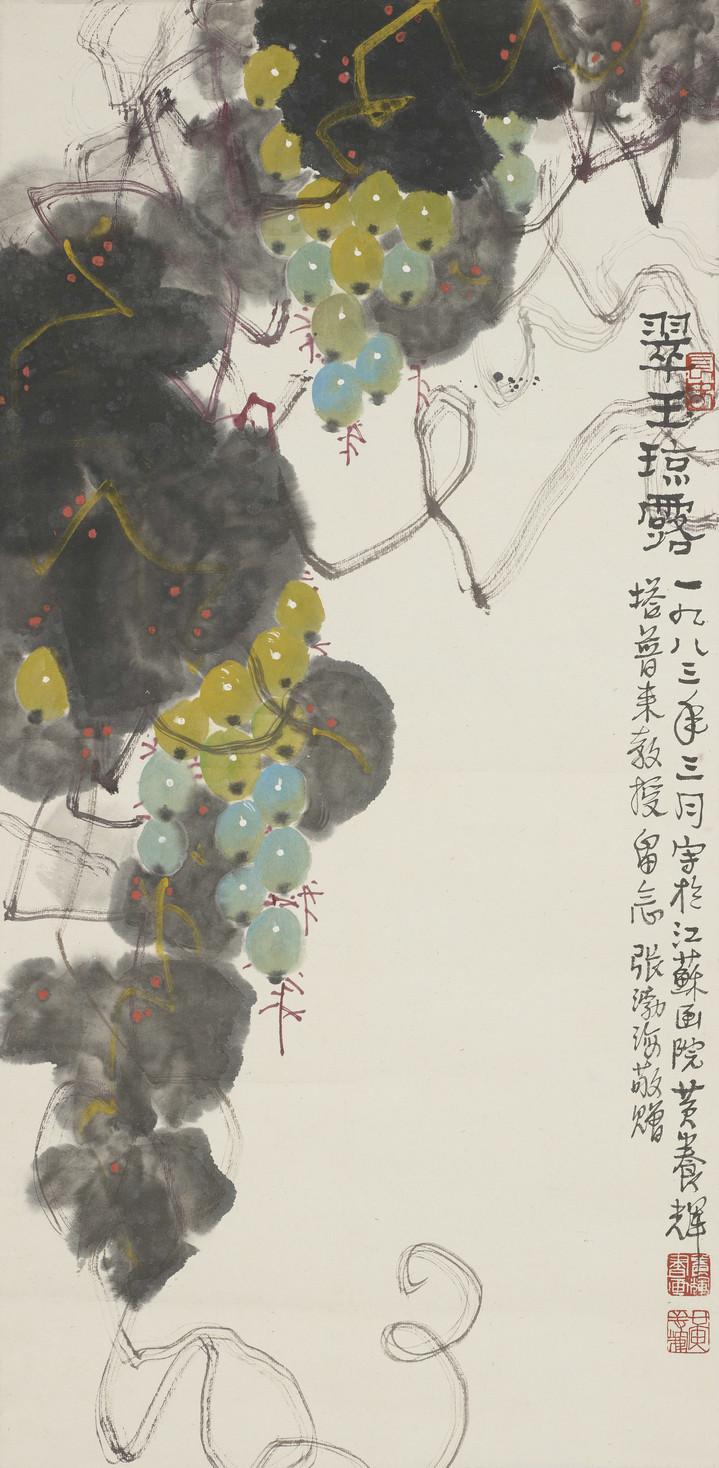 翠玉琼露
一九八三年三月写於江蘇画院黄養輝
塔普来教授留念 张渤海敬赠